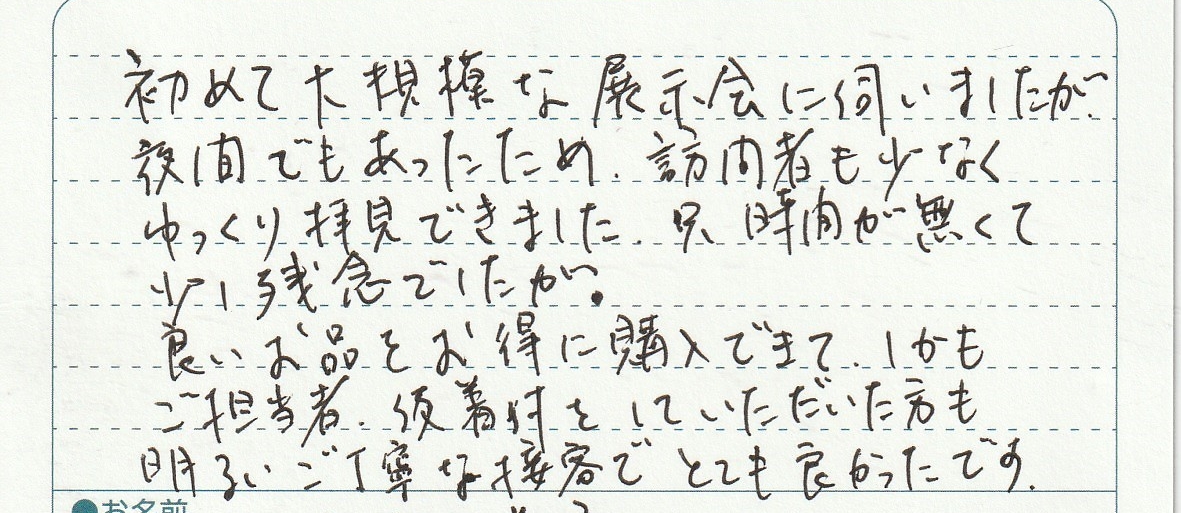 初めて大規模な展示会に伺いましたが、
夜間でもあったため、訪問者も少なく
ゆっくり拝見できました。只、時間が無くて
少し残念でしたが。
良いお品をお得に購入できて、しかも
ご担当者、仮着付をしていただいた方も
明るいご丁寧な接客でとても良かったです。
●お名前